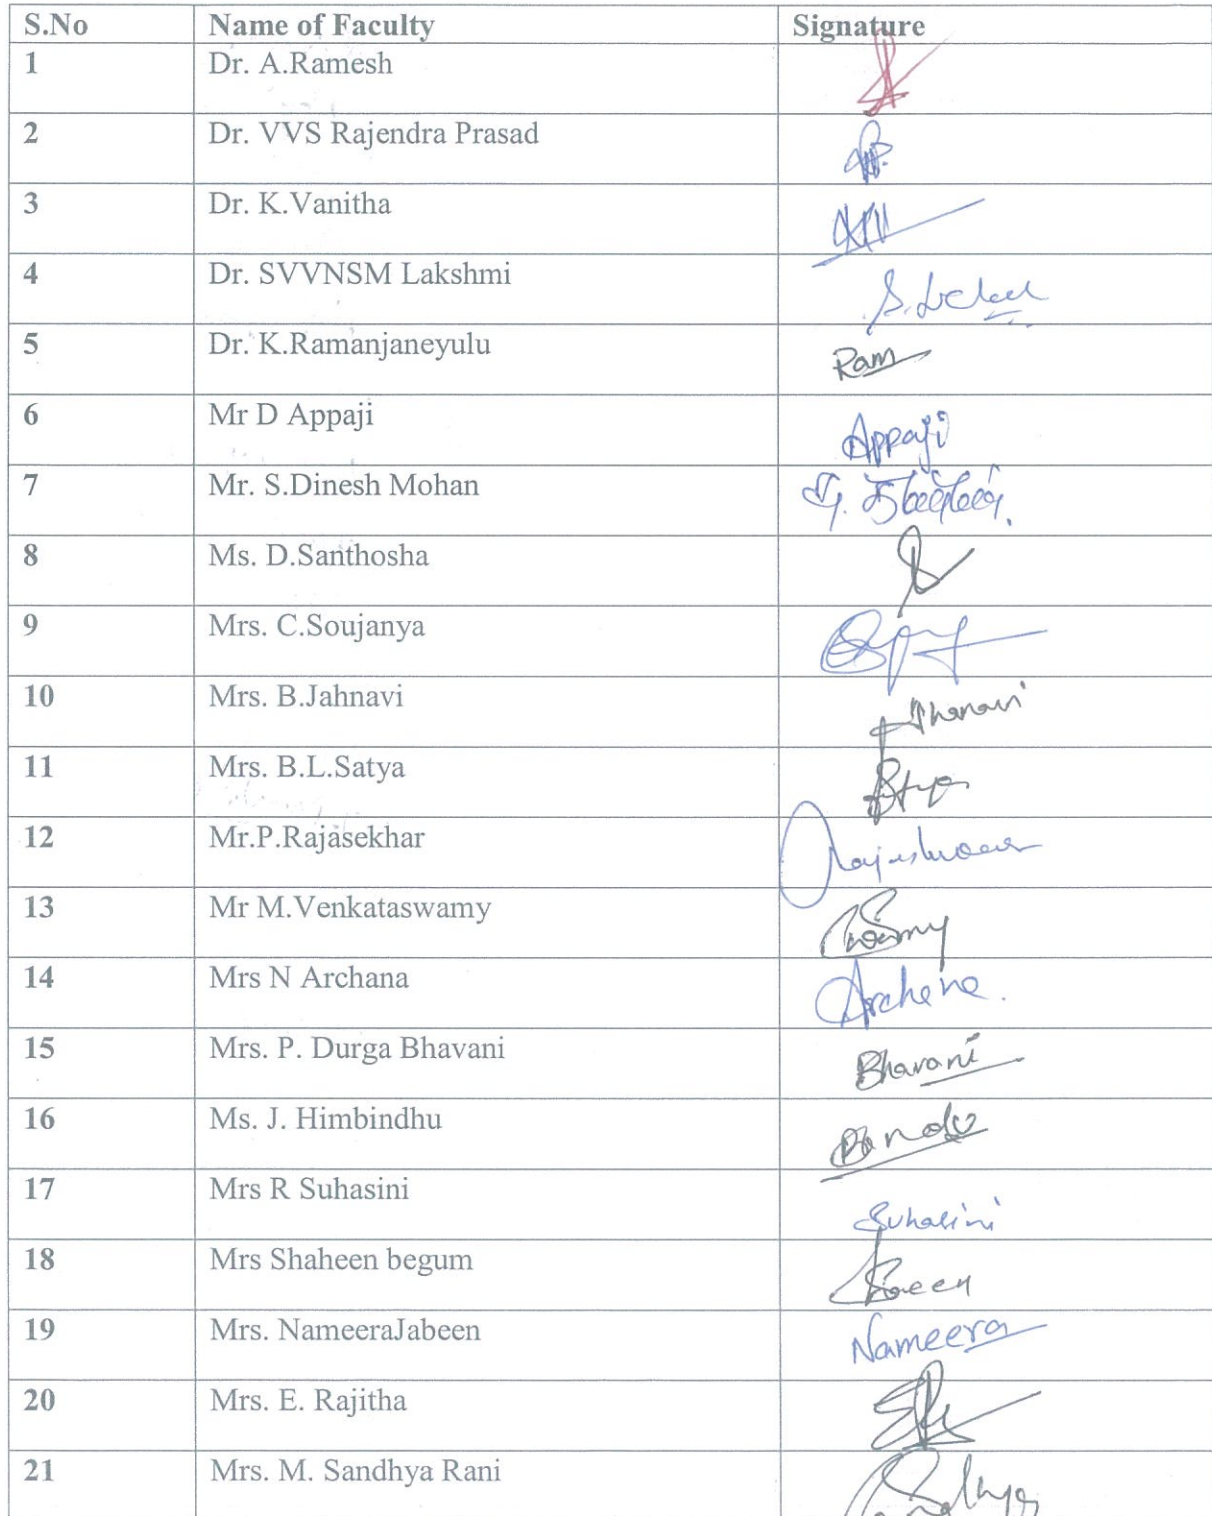 S.No Name of Faculty Signature
1 Dr. A.Ramesh
2 Dr. VVS Rajendra Prasad
3 Dr. K.Vanitha
4 Dr. SVVNSM Lakshmi
5 Dr. K.Ramanjaneyulu Ram
6 Mr D Appaji Appaji
7 Mr. S.Dinesh Mohan
8 Ms. D.Santhosha
9 Mrs. C.Soujanya
10 Mrs. B.Jahnavi
11 Mrs. B.L.Satya
12 Mr.P.Rajasekhar
13 Mr M.Venkataswamy Swamy
14 Mrs N Archana Archana.
15 Mrs. P. Durga Bhavani Bhavani
16 Ms. J. Himbindhu
17 Mrs R Suhasini Suhasini
18 Mrs Shaheen begum
19 Mrs. NameeraJabeen Nameera
20 Mrs. E. Rajitha
21 Mrs. M. Sandhya Rani